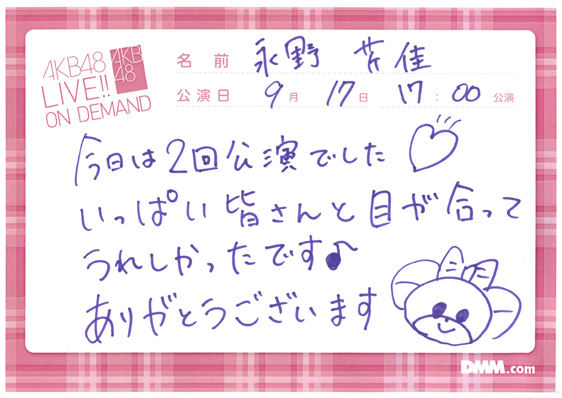 AKB48
LIVE!!
ON DEMAND
AKB
48
名前 永野 芹佳
公演日 9月 17日 17:00 公演
今日は2回公演でした
いっぱい皆さんと目が合って
うれしかったです♪
ありがとうございます
DMM.com